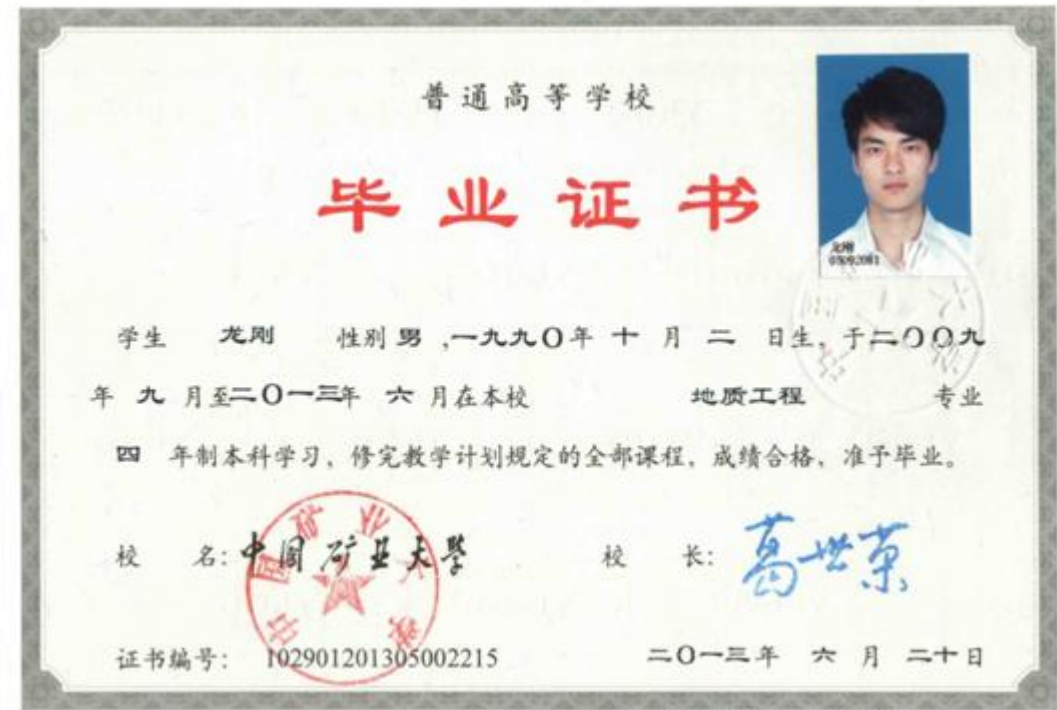 普通高等学校
毕业证书
龙刚
学生 龙刚 性别 男 ,一九九〇年 十 月 二 日生, 于二〇〇九
年 九 月至二〇一三年 六 月在本校 地质工程 专业
四 年制本科学习, 修完教学计划规定的全部课程, 成绩合格, 准予毕业。
校 名: 中国矿业大学 校 长: 葛世荣
中国矿业大学
证书编号: 102901201305002215 二〇一三年 六 月 二十日